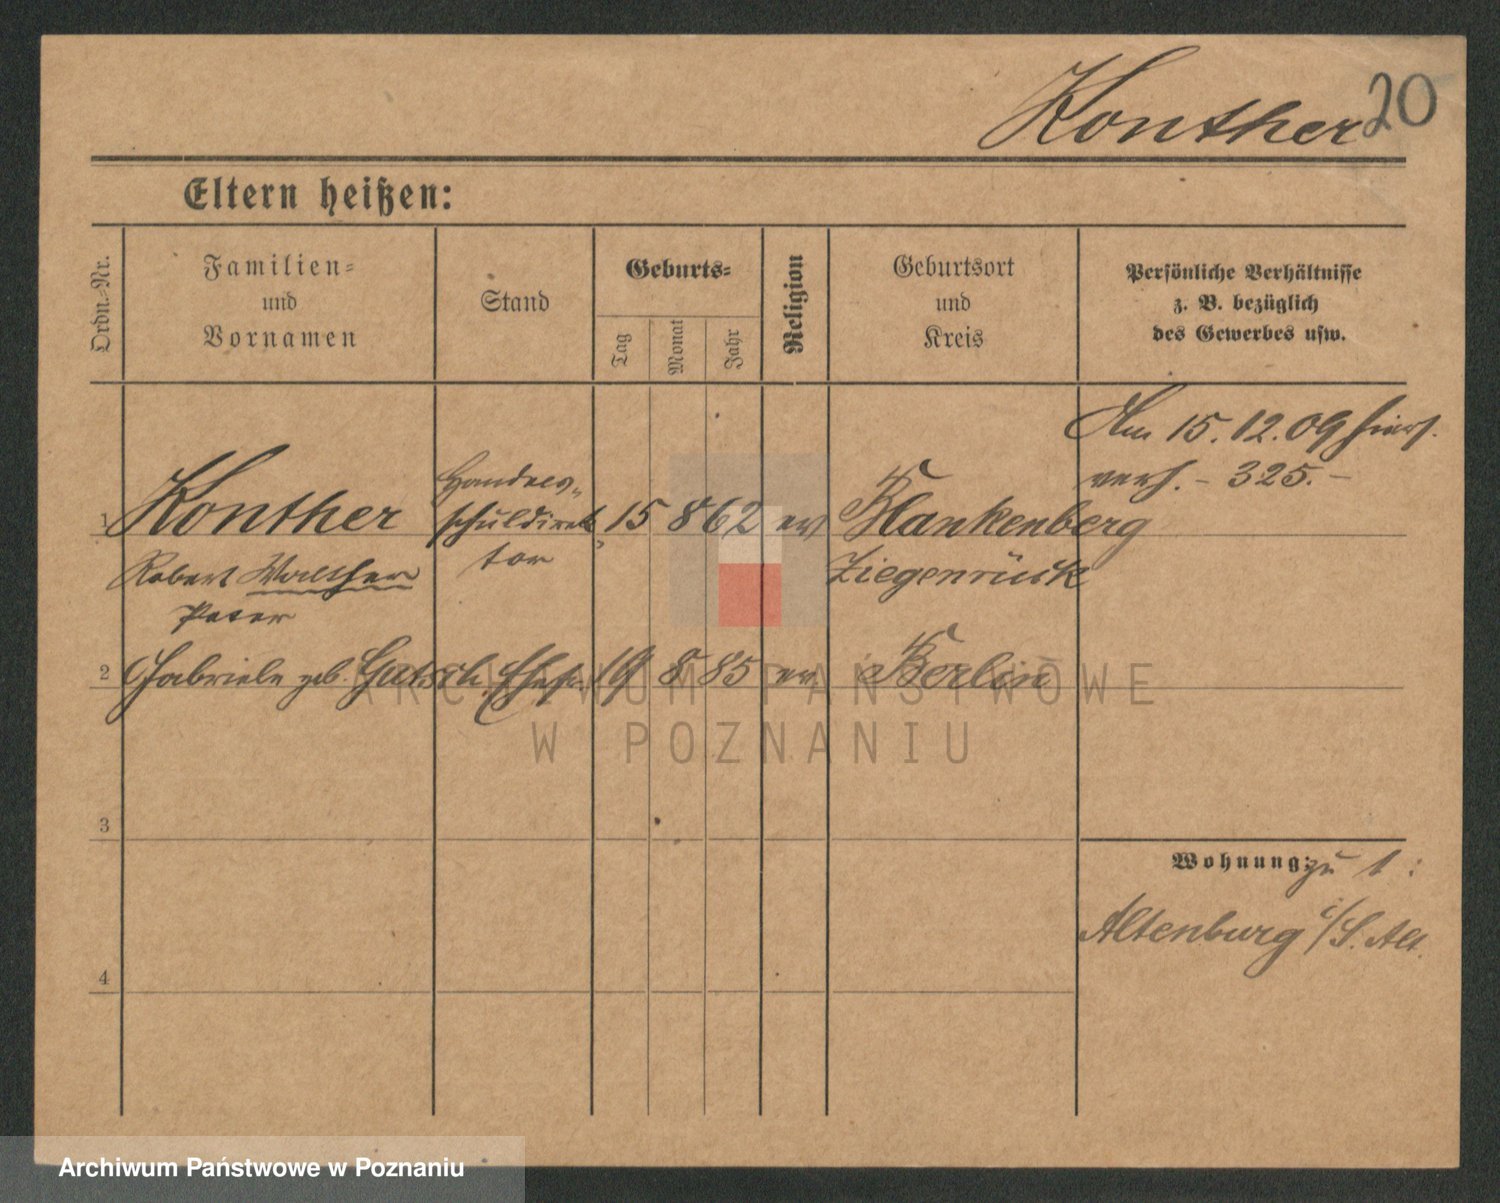 Konther 20
Eltern heißen:
Ordn.-Nr.
Familien-
und
Vornamen
Stand
Geburts-
Tag
Monat
Jahr
Religion
Geburtsort
und
Kreis
Persönliche Verhältnisse
z. B. bezüglich
des Gewerbes usw.
Am 15.12.09 hiers.
verh. - 325.-
Handels-
1 Konther schuldirek- 15 8 62 ev Blankenberg
tor
Robert Walther Ziegenrück
Peter
2 Gabriele geb. Ehefr. 19 8 85 ev Berlin
ARCHIWUM PAŃSTWOWE
W POZNANIU
3
Wohnung: zu 1:
Altenburg i/S. Alt.
4
Archiwum Państwowe w Poznaniu